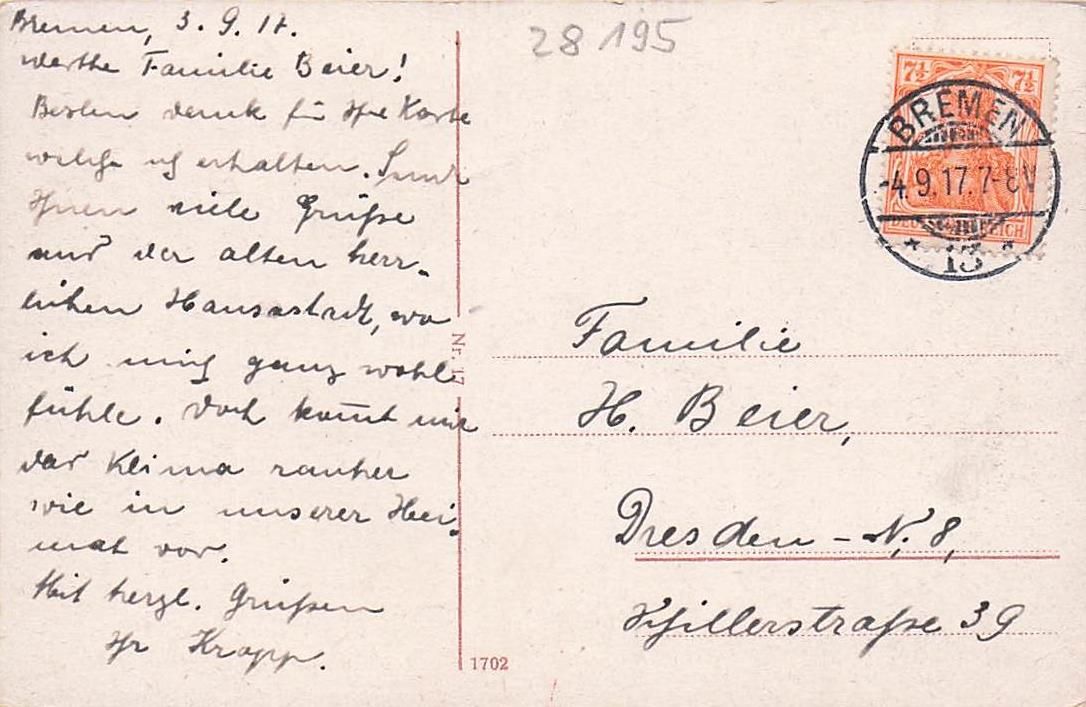 Bremen, 3.9.17.
Werthe Familie Beier!
Besten Dank für Ihre Karte
welche ich erhalten. Sende
Ihnen viele Grüße
aus der alten herr-
lichen Hansastadt, wo
ich mich ganz wohl
fühle. Doch kom̅t mir
das Klima rauher
wie in unserer Hei-
mat vor.
Mit herzl. Grüßen
Ihr Kropp.
28 195
7½ 7½
DEUTSCHES REICH
BREMEN
-4.9.17.7-8V
* 13 *
Familie
H. Beier,
Dresden-N. 8,
Schillerstraße 39
Nr. 17
1702